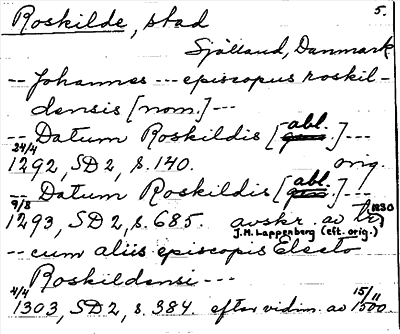 Roskilde, stad 5.
Sjölland, Danmark
-- Johannes --- episcopus roskil-
densis [nom.] ---
-- Datum Roskildis [abl.] ---
24/4
1292, SD 2, s. 140. orig.
-- Datum Roskildis [abl.] ---
9/8
1293, SD 2, s. 685. avskr. av tr. 1830
J.M. Lappenberg (eft. orig.)
-- cum aliis episcopis Electo
Roskildensi ---
4/4 15/11
1303, SD 2, s. 384. efter vidim. av 1500